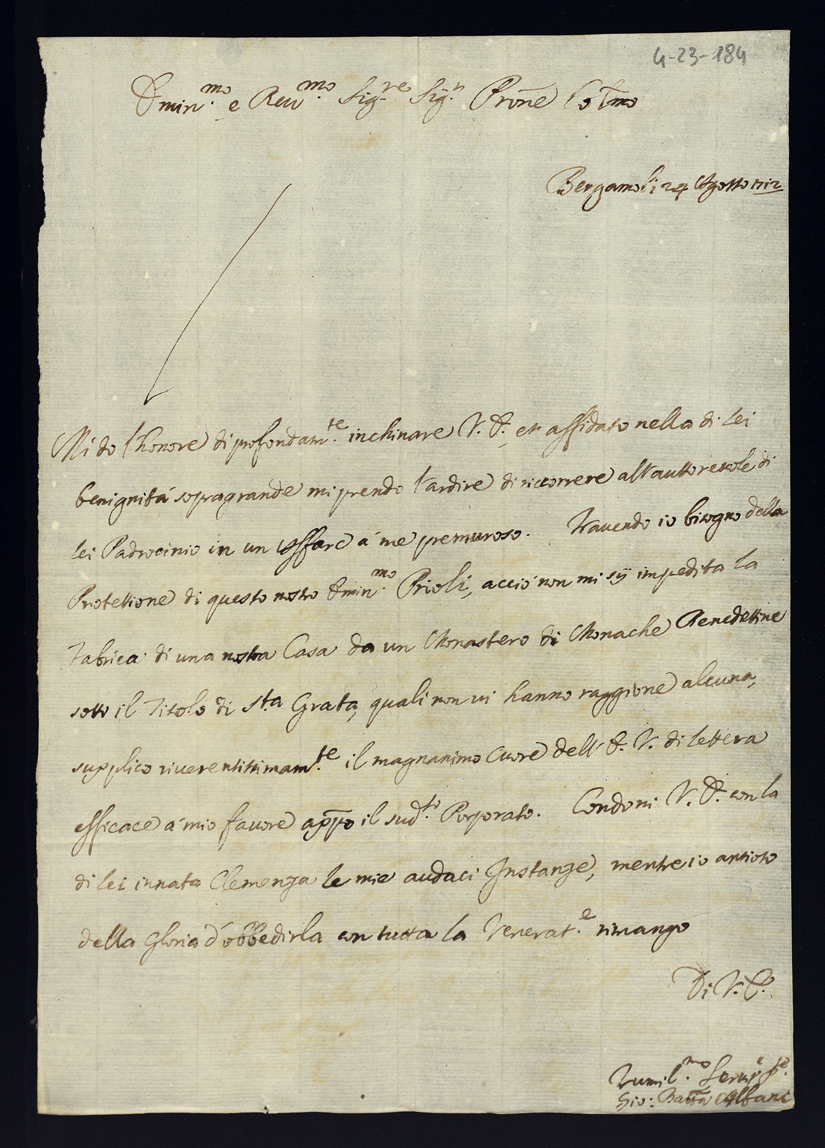 4-23-184
Emin.mo e Rev.mo Sig.re Sig.r Prone Col.mo
Bergamo li 24 Agosto 1712
Mi do l'honore di profondam.te inchinare V. E., et affidato nella di lei
benignità sopragrande mi prendo l'ardire di riccorrere all'auttorevole di
lei Padrocinio in un affare à me premuroso. Havendo io bisogno della
Protettione di questo nostro Emin.mo Prioli, acciò non mi sÿ impedita la
Fabrica di una nostra Casa da un Monastero di Monache Benedettine
sotto il Titolo di S.ta Grata, quali non vi hanno raggione alcuna,
supplico riverentissimam.te il magnanimo Cuore dell'E. V. di lettera
efficace à mio favore appo il sud.to Porporato. Condoni V. E. con la
di lei innata Clemenza le mie audaci Instanze, mentre io
della Gloria d'obbedirla con tutta la Venerat.e rimango
Di V. E.
Humil.mo
Gio: Batta Albani